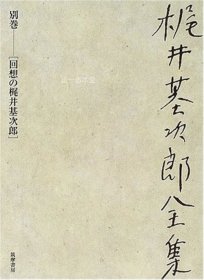 梶井基次郎全集
別巻──[回想の梶井基次郎]
筑摩書房